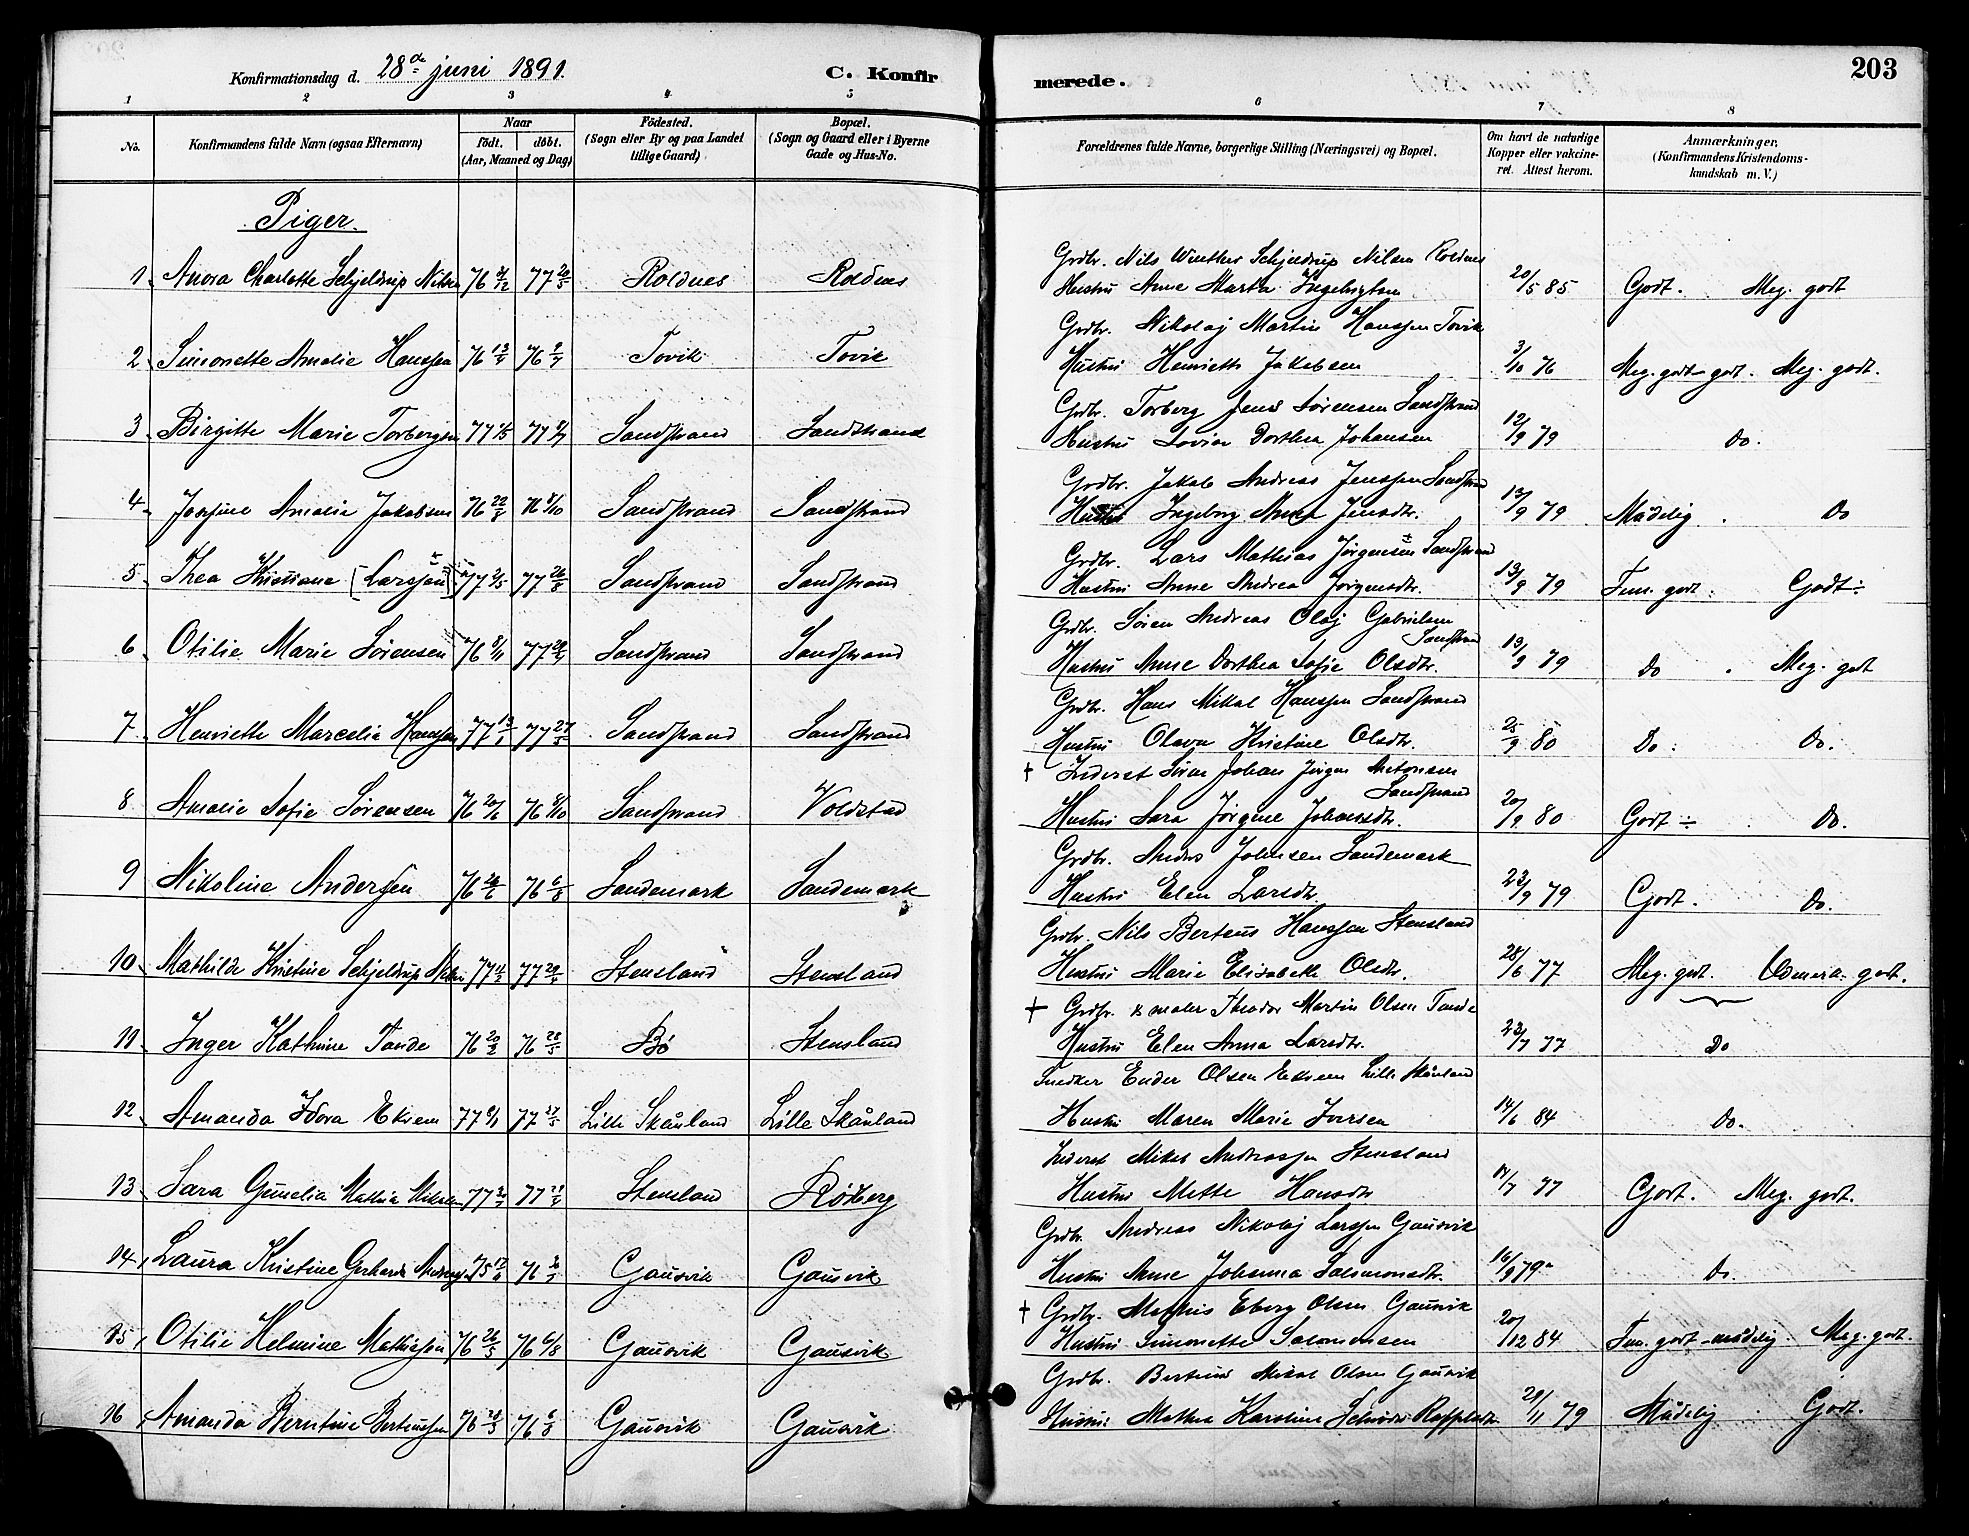 203
Konfirmationsdag d. 28de juni 1891.
C. Konfirmerede.
1 2 3 4 5 6 7 8
No. Konfirmandens fulde Navn (ogsaa Efternavn) Naar födt. döbt. (Aar, Maaned og Dag) Födested. (Sogn eller By og paa Landet tillige Gaard) Bopæl. (Sogn og Gaard eller i Byerne Gade og Hus-No. Forældrenes fulde Navne, borgerlige Stilling (Næringsvei) og Bopæl. Om havt de naturlige Kopper eller vakcineret. Attest herom. Anmærkninger, (Konfirmandens Kristendomskundskab m. V.)
Piger.
Grdbr. Nils Winther Schjeldrup Nilsen Roldnes
1 Anora Charlotte Schjeldrup Nilsen 76 77 20/5 Roldnes Roldnes Hustru Anne Marta Ingebrigtsen 20/5 85 Godt. Meg. godt
Grdbr. Nikolaj Martin Hanssen Tovik
2 Simonette Amalie Hanssen 76 13/4 76 9/7 Tovik Tovik Hustru Henriette Jakobsen 3/10 76 Meg. godt - godt. Meg. godt.
Grdbr. Torberg Jens Sörensen Sandstrand
3 Birgitte Marie Torbergsen 77 77 Sandstrand Sandstrand Hustru Lovise Dorthea Johansen 12/9 79 Do.
Grdbr. Jakob Andreas Jenssen Sandstrand
4 Josefine Amalie Jakobsen 76 22/8 76 8/10 Sandstrand Sandstrand Hustru Ingeborg Anna Jensdtr. 13/9 79 Mådelig. Do
Grdbr. Lars Mathias Jørgensen Sandstrand
5 Thea Kristiane [Larssen] 77 2/5 77 26/8 Sandstrand Sandstrand Hustru Anne Andrea Jørgensdtr. 13/9 79 Tem. godt. Godt÷
Grdbr. Sören Andreas Olaj Gabrielsen Sandstrand
6 Otilie Marie Sörensen 76 8/11 77 Sandstrand Sandstrand Hustru Anne Dorthea Sofie Olsdtr. 13/9 79 Do. Meg. godt
Grdbr. Hans Mikal Hanssen Sandstrand
7 Henriette Marcelie Hanssen 77 13/1 77 27/5 Sandstrand Sandstrand Hustru Olava Kristine Olsdtr. 25/9 80 Do. Do.
† Inderst Sören Johan Jörgen Antonsen Sandstrand
8 Amalie Sofie Sörensen 76 20/6 76 8/10 Sandstrand Voldstad Hustru Sara Jörgine Johansdtr. 20/9 80 Godt÷ Do.
Grdbr. Anders Johnsen Sandemark
9 Nikoline Andersen 76 26/6 76 6/8 Sandemark Sandemark Hustru Elen Larsdtr. 23/9 79 Godt. Do.
Grdbr. Nils Berteus Hanssen Stensland
10 Mathilde Kristine Schjeldrup Nilsen 77 77 29/4 Stensland Stensland Hustru Marie Elisabeth Olsdtr. 28/6 77 Meg. godt. Udmerk. godt.
† Grdbr. & maler Theodor Martin Olsen Tande
11 Inger Kathrine Tande 76 20/2 76 28/5 Bø Stensland Hustru Elen Anna Larsdtr. 23/7 77 Do
Snedker Ender Olsen Ekrem Lille Skånland
12 Amanda Idora Ekrem 77 77 27/5 Lille Skånland Lille Skånland Hustru Maren Marie Iversen 14/6 84 Do.
Inderst Mikal Andreassen Stensland
13 Sara Gunelia Mathia Mikalsen 77 77 29/4 Stensland Röberg Hustru Mette Hansdtr 17/7 77 Godt. Meg. godt.
Grdbr. Andreas Nikolaj Larssen Gausvik
14 Laura Kristine Gerharda 75 76 Gausvik Gausvik Hustru Anne Johanna Salomonsdtr. 16/9 79 Do.
† Grdbr. Mathis Eberg Olsen Gausvik
15 Otilie Helmine Mathisen 76 26/5 76 6/8 Gausvik Gausvik Hustru Simonette Salomonsen 20/12 84 Tem. godt - mådelig. Meg. godt.
Grdbr. Berteus Mikal Olsen Gausvik
16 Amanda Berntine Berteussen 76 28/3 76 6/8 Gausvik Gausvik Hustru Mathea Karoline Schröder 29/11 79 Mådelig. Godt.